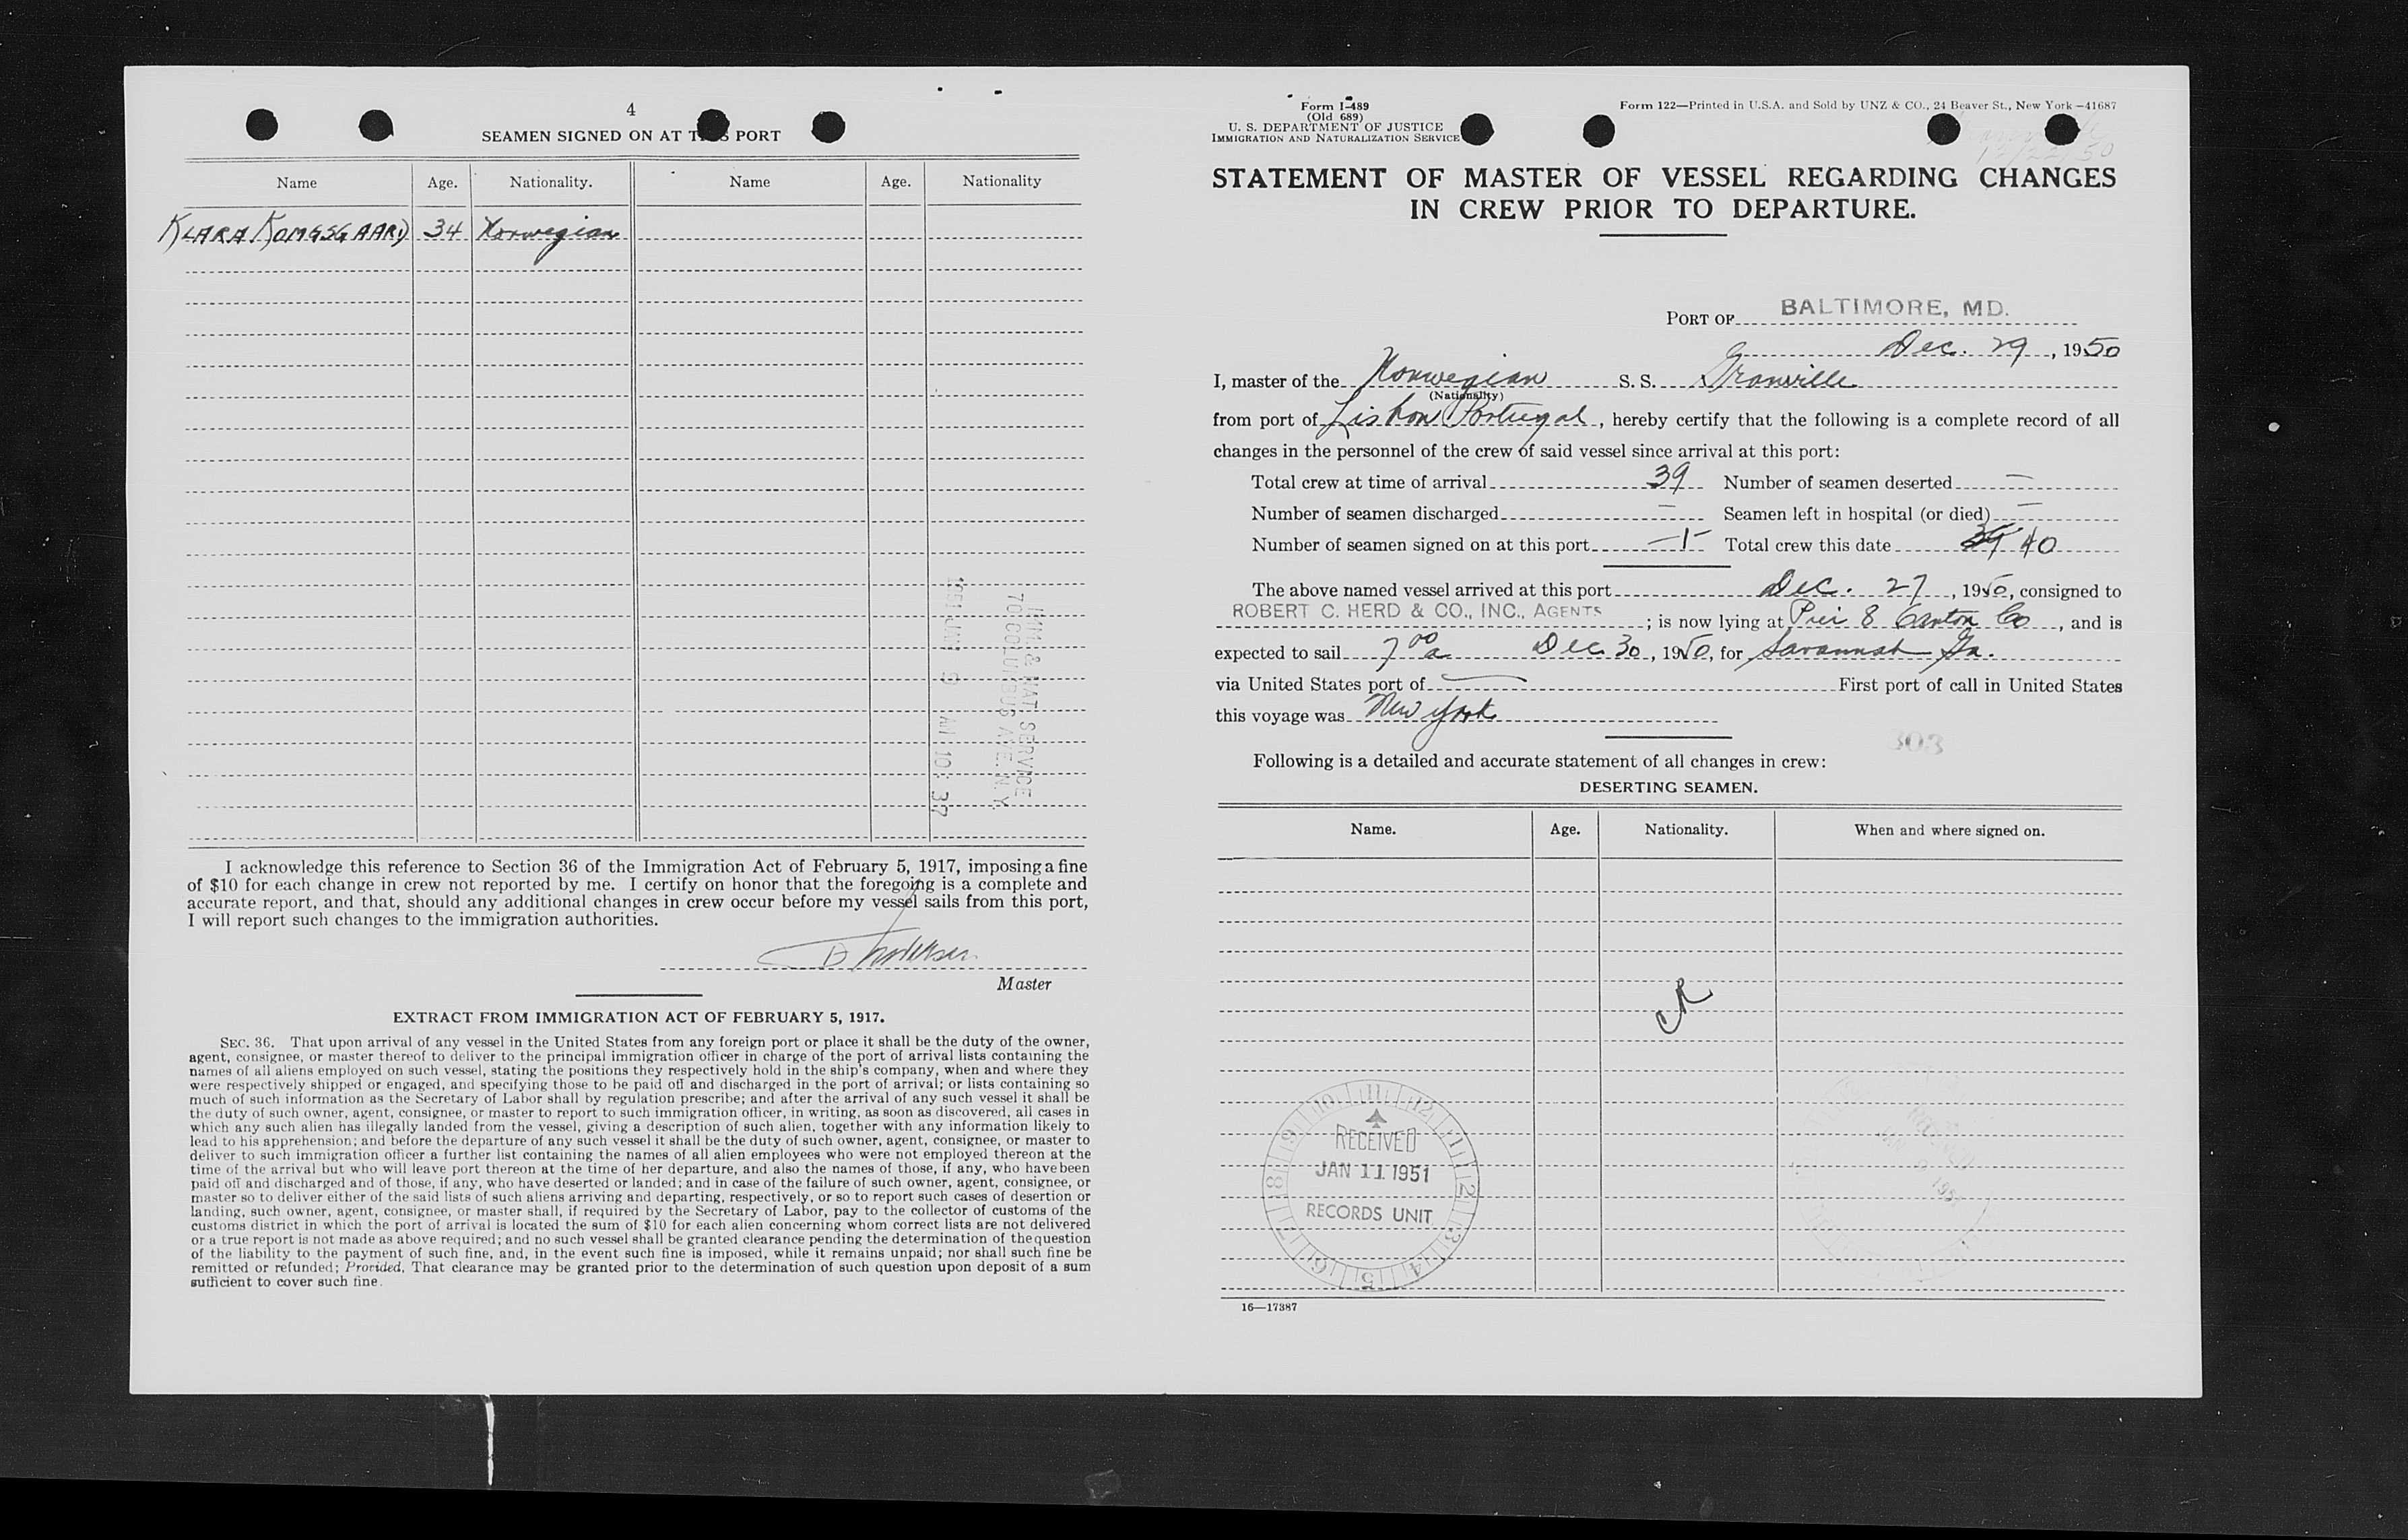 4
SEAMEN SIGNED ON AT THIS PORT
Name Age. Nationality. Name Age. Nationality
KLARA KOMGSGAARD 34 Norwegian
IMM. & NAT. SERVICE
70 COLUMBUS AVE. N.Y.
1951 JAN 9 AM 10: 37
I acknowledge this reference to Section 36 of the Immigration Act of February 5, 1917, imposing a fine
of $10 for each change in crew not reported by me. I certify on honor that the foregoing is a complete and
accurate report, and that, should any additional changes in crew occur before my vessel sails from this port,
I will report such changes to the immigration authorities.
Master
EXTRACT FROM IMMIGRATION ACT OF FEBRUARY 5, 1917.
SEC. 36. That upon arrival of any vessel in the United States from any foreign port or place it shall be the duty of the owner,
agent, consignee, or master thereof to deliver to the principal immigration officer in charge of the port of arrival lists containing the
names of all aliens employed on such vessel, stating the positions they respectively hold in the ship's company, when and where they
were respectively shipped or engaged, and specifying those to be paid off and discharged in the port of arrival; or lists containing so
much of such information as the Secretary of Labor shall by regulation prescribe; and after the arrival of any such vessel it shall be
the duty of such owner, agent, consignee, or master to report to such immigration officer, in writing, as soon as discovered, all cases in
which any such alien has illegally landed from the vessel, giving a description of such alien, together with any information likely to
lead to his apprehension; and before the departure of any such vessel it shall be the duty of such owner, agent, consignee, or master to
deliver to such immigration officer a further list containing the names of all alien employees who were not employed thereon at the
time of the arrival but who will leave port thereon at the time of her departure, and also the names of those, if any, who have been
paid off and discharged and of those, if any, who have deserted or landed; and in case of the failure of such owner, agent, consignee, or
master so to deliver either of the said lists of such aliens arriving and departing, respectively, or so to report such cases of desertion or
landing, such owner, agent, consignee, or master shall, if required by the Secretary of Labor, pay to the collector of customs of the
customs district in which the port of arrival is located the sum of $10 for each alien concerning whom correct lists are not delivered
or a true report is not made as above required; and no such vessel shall be granted clearance pending the determination of the question
of the liability to the payment of such fine, and, in the event such fine is imposed, while it remains unpaid; nor shall such fine be
remitted or refunded; Provided, That clearance may be granted prior to the determination of such question upon deposit of a sum
sufficient to cover such fine.
Form I-489
(Old 689)
U. S. DEPARTMENT OF JUSTICE
IMMIGRATION AND NATURALIZATION SERVICE
Form 122—Printed in U.S.A. and Sold by UNZ & CO., 24 Beaver St., New York—41687
12/22/50
STATEMENT OF MASTER OF VESSEL REGARDING CHANGES
IN CREW PRIOR TO DEPARTURE.
PORT OF BALTIMORE, MD.
Dec. 29, 1950
I, master of the Norwegian S. S. Granville
(Nationality)
from port of Lisbon Portugal, hereby certify that the following is a complete record of all
changes in the personnel of the crew of said vessel since arrival at this port:
Total crew at time of arrival 39 Number of seamen deserted —
Number of seamen discharged — Seamen left in hospital (or died) —
Number of seamen signed on at this port —1— Total crew this date 39 40
The above named vessel arrived at this port Dec. 27, 1950, consigned to
ROBERT C. HERD & CO., INC., AGENTS ; is now lying at Pier 8 Canton Co, and is
expected to sail 7 00 a Dec 30, 1950, for Savannah Ga.
via United States port of — First port of call in United States
this voyage was New York
303
Following is a detailed and accurate statement of all changes in crew:
DESERTING SEAMEN.
Name. Age. Nationality. When and where signed on.
RECEIVED
JAN 11 1951
RECORDS UNIT
16—17387